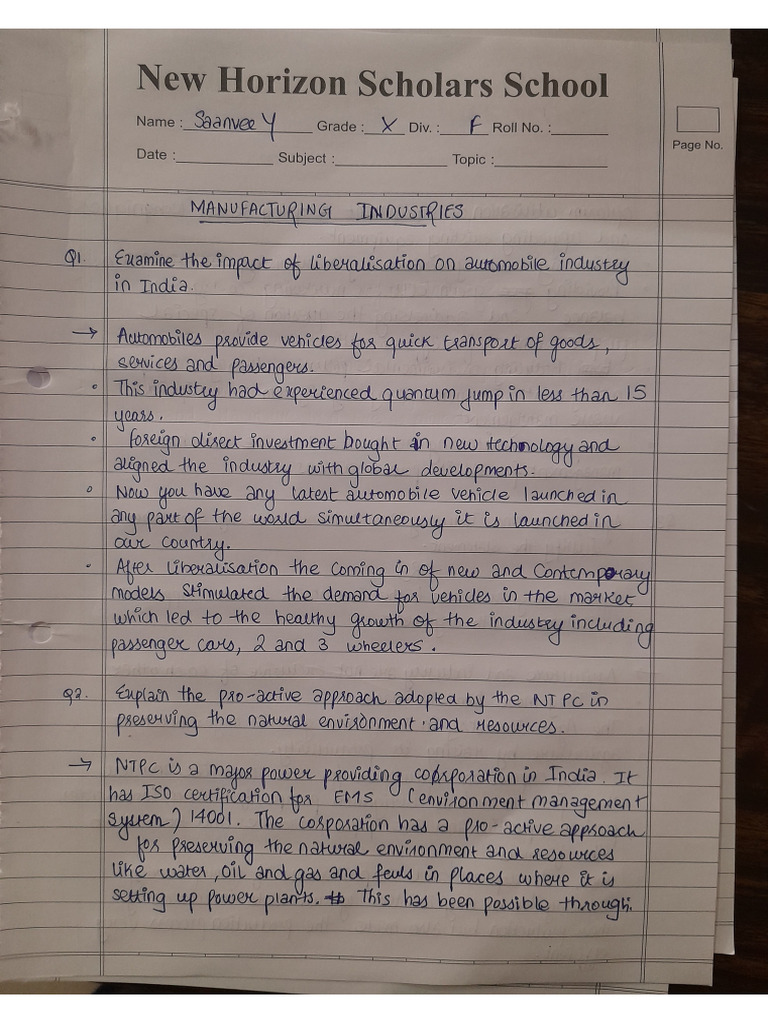 New Horizon Scholars School
Name : Saanvee Y Grade : X Div. : F Roll No. :
Page No.
Date : Subject : Topic :
MANUFACTURING INDUSTRIES
Q1. Examine the impact of liberalisation on automobile industry
in India.
→ Automobiles provide vehicles for quick transport of goods,
services and passengers.
• This industry had experienced quantum jump in less than 15
years.
• foreign direct investment bought in new technology and
aligned the industry with global developments.
• Now you have any latest automobile vehicle launched in
any part of the world simultaneously it is launched in
our country.
• After liberalisation the coming in of new and contemporary
models stimulated the demand for vehicles in the market
which led to the healthy growth of the industry including
passenger cars, 2 and 3 wheelers.
Q2. Explain the pro-active approach adopted by the NTPC in
preserving the natural environment and resources.
→ NTPC is a major power providing corporation in India. It
has ISO certification for EMS (environment management
system) 14001. The corporation has a pro-active approach
for preserving the natural environment and resources
like water, oil and gas and feuls in places where it is
setting up power plants. This has been possible through.